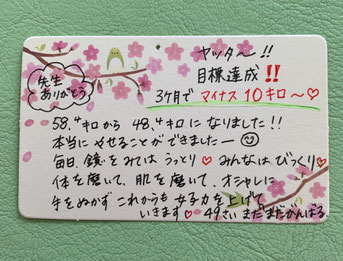 先生
ありがとう
ヤッター!!
目標達成!!
3ヶ月でマイナス10キロ～♡
58.4キロから 48.4キロになりました!!
本当にやせることができましたー☺
毎日、鏡をみてはうっとり♡みんなはびっくり♡
体を磨いて、肌を磨いて、オシャレに
手をぬかず これからも女子力を上げて
いきます♡ 49さい まだまだがんばる